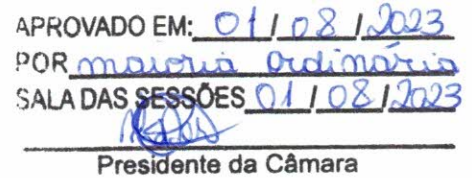 APROVADO EM: 01 / 08 / 2023
POR maioria ordinária
SALA DAS SESSÕES 01 / 08 / 2023
Presidente da Câmara